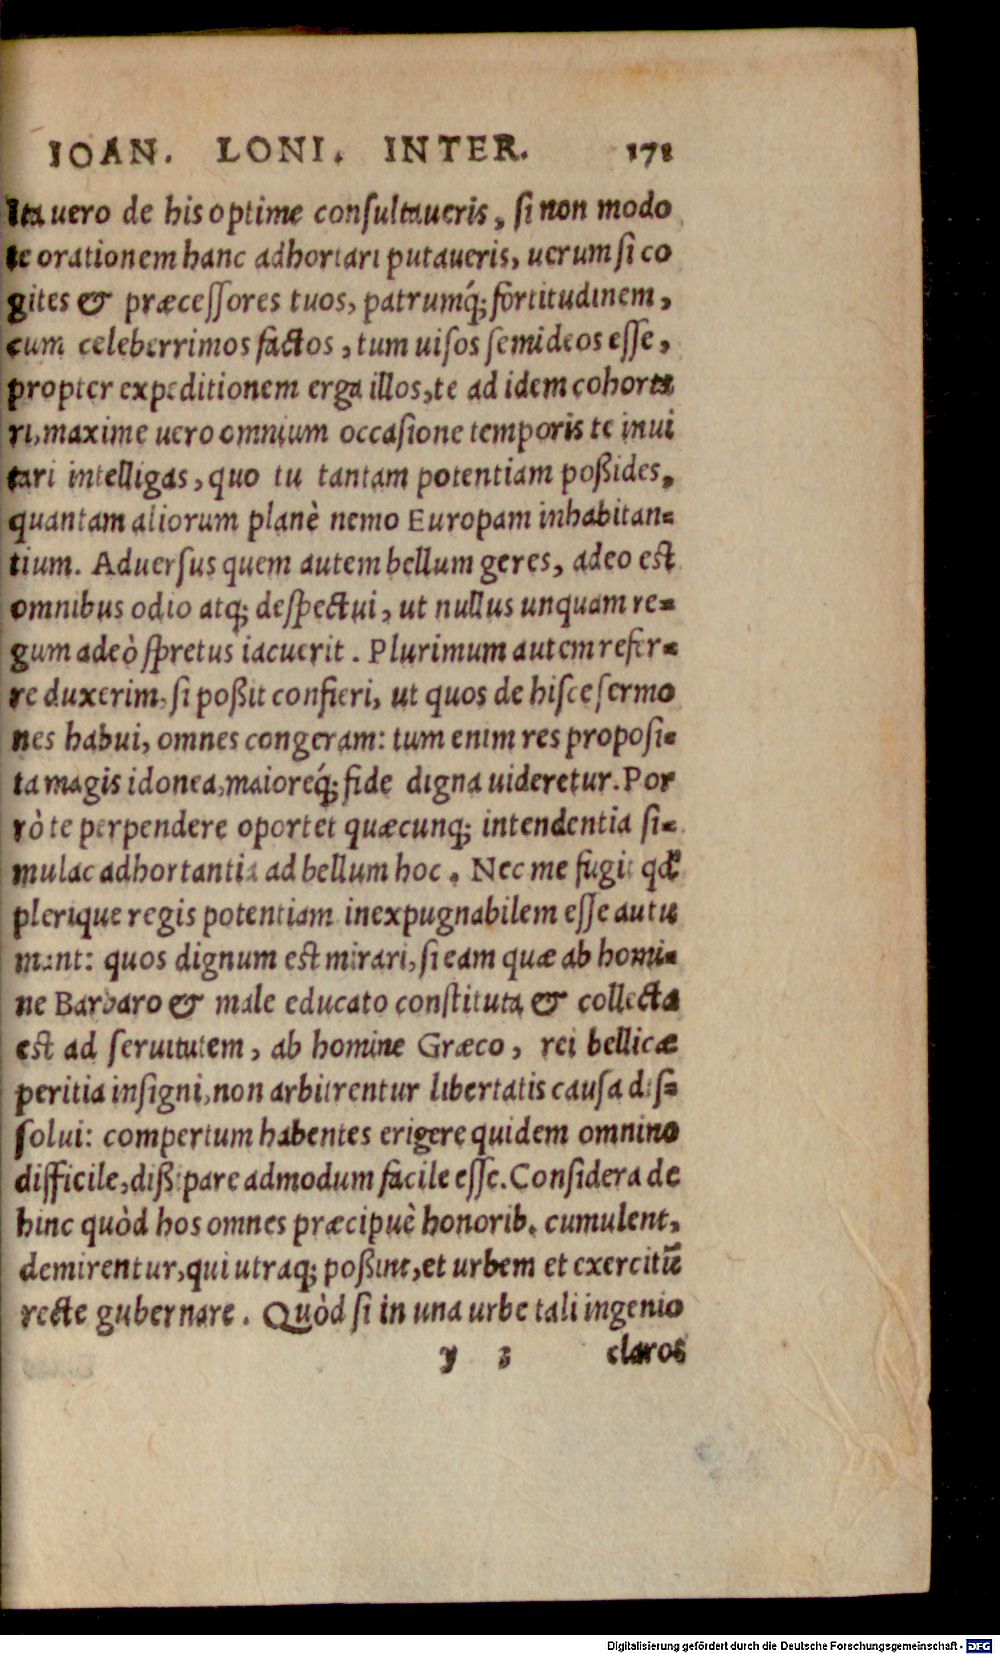 IOAN. LONI. INTER. 171
Ita uero de his optime consultaueris, si non modo
te orationem hanc adhortari putaueris, uerum si co
gites & præcessores tuos, patrumq́; fortitudinem,
cum celeberrimos factos, tum uisos semideos esse,
propter expeditionem erga illos, te ad idem cohorta
ri, maxime uero omnium occasione temporis te inui
tari intelligas, quo tu tantam potentiam poßides,
quantam aliorum planè nemo Europam inhabitan=
tium. Aduersus quem autem bellum geres, adeo est
omnibus odio atq; despectui, ut nullus unquam re=
gum adeò spretus iacuerit. Plurimum autem refer=
re duxerim, si poßit confieri, ut quos de hisce sermo
nes habui, omnes congeram: tum enim res proposi=
ta magis idonea, maioreq́; fide digna uideretur. Por
rò te perpendere oportet quæcunq; intendentia si=
mulac adhortantia ad bellum hoc. Nec me fugit qđ
plerique regis potentiam inexpugnabilem esse autu
mant: quos dignum est mirari, si eam quæ ab homi=
ne Barbaro & male educato constituta & collecta
est ad seruitutem, ab homine Græco, rei bellicæ
peritia insigni, non arbitrentur libertatis causa dis=
solui: compertum habentes erigere quidem omnino
difficile, dißipare admodum facile esse. Considera de
hinc quòd hos omnes præcipuè honorib. cumulent,
demirentur, qui utraq; poßint, et urbem et exercitū
recte gubernare. Quòd si in una urbe tali ingenio
y 3 claros
Digitalisierung gefördert durch die Deutsche Forschungsgemeinschaft - DFG